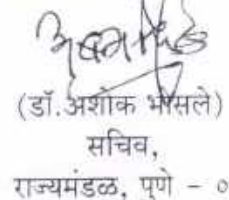 (डॉ.अशोक भोसले)
सचिव,
राज्यमंडळ, पुणे - ०